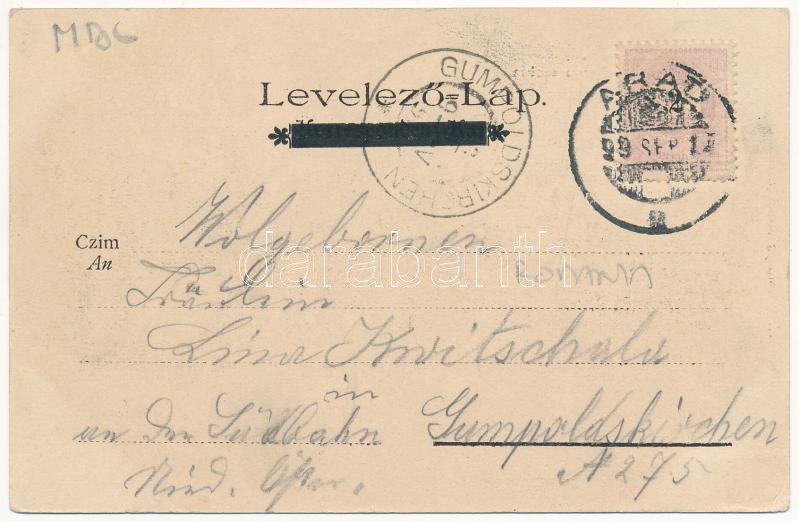 MBC
GUMPOLDSKIRCHEN
ARAD
99 SEP 12
2
Levelező-Lap.
Czim
An
Wolgebornen
Fräulein
Lina Kwitschala
in
an der Südbahn Gumpoldskirchen
Nied. Öster. A 275
ROMANIA
darabanth